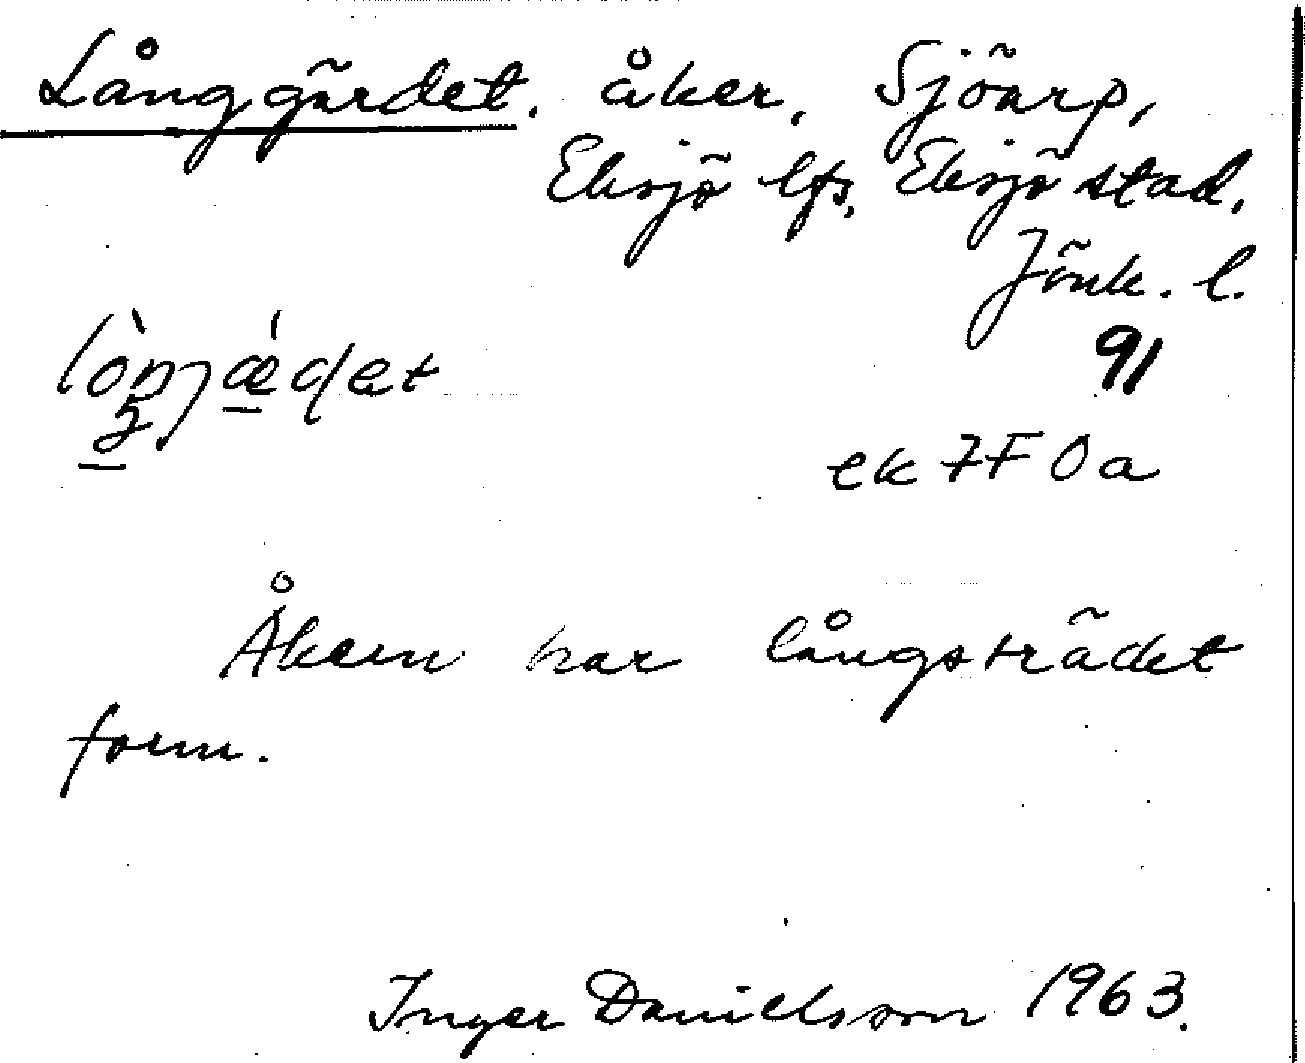 Långgärdet. åker, Sjöarp,
Eksjö lfs, Eksjö stad,
Jönk. l.
91
ek 7F 0a
Åkern har långsträdet
form.
Inger Danielsson 1963.